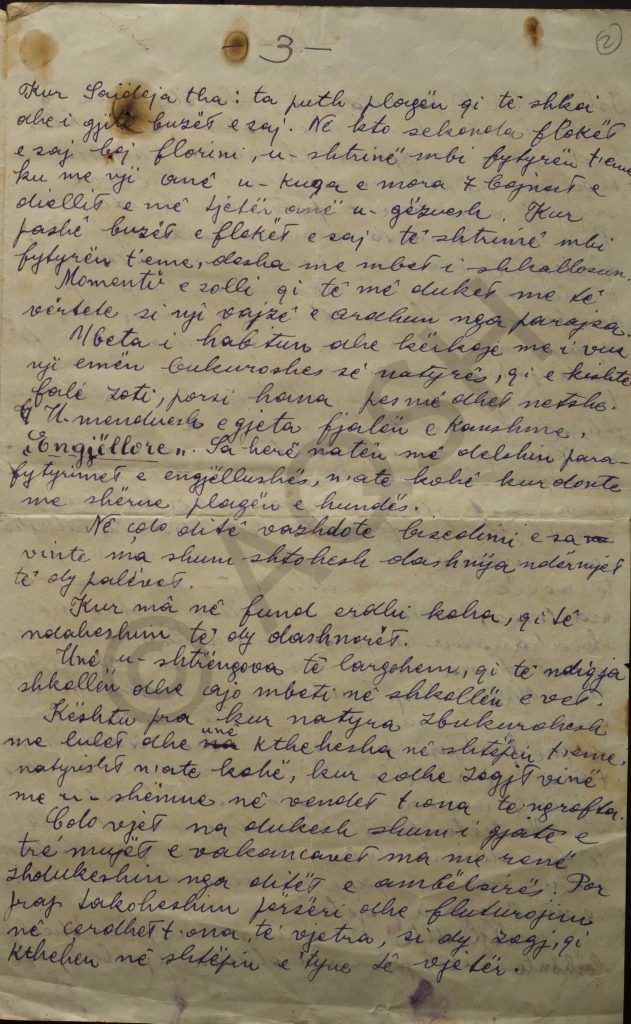 - 3 -
2
Kur Sajdeja tha: ta puth plagën qi të shkoi
dhe i gjitë buzët e saj. Në kto sekonda flokët
e saj boj florini, u-shtrinë mbi fytyrën t'eme
ku me nji anë u-kuqa e mora 7 bojnat e
diellit e më tjetër anë u-gëzuesh. Kur
pashë buzët e flokët e saj të shtrimë mbi
fytyrën t'eme, desha me mbet i shkallosun.
Momenti e solli qi të më duket me të
vërtete si nji vajzë e ardhun nga parajsa.
Ubeta i habitun dhe kërkoje me i vu
nji emën bukuroshes së natyrës, qi e kishte
falë zoti, porsi hana pesmëdhet netshe.
U menduesh e gjeta fjalën e kaushme,
"Engjëllore". Sa herë natën më delshin para-
fytyrimet e engjëllushës, n'ate kohë kur donte
me shërue plagën e hundës.
Në çdo ditë vazhdote bisedimi e sa
vinte ma shum shtohesh dashnija ndërmjet
të dy palëvet.
Kur mâ në fund erdhi koha, qi të
ndaheshim të dy dashnorët.
Unë u-shtrëngova të largohem, qi të ndigja
shkollën dhe ajo mbeti në shkollën e vet.
Kështu pra kur natyra zbukurohesh
me lulet dhe unë kthehesha në shtëpin t'eme,
natyrisht n'ate kohë, kur edhe zogjt vinë
me u-shëmue në vendet t'ona të ngrofta.
Çdo vjet na dukesh shum i gjatë e
tre muejt e vakancavet ma me renë
zhdukeshin nga ditët e ambëlsirës. Por
prap takoheshim përsëri dhe fluturojim
në çerdhet t'ona të vjetra, si dy zogj, qi
kthehen në shtëpin e tyne të vjetër.
© A